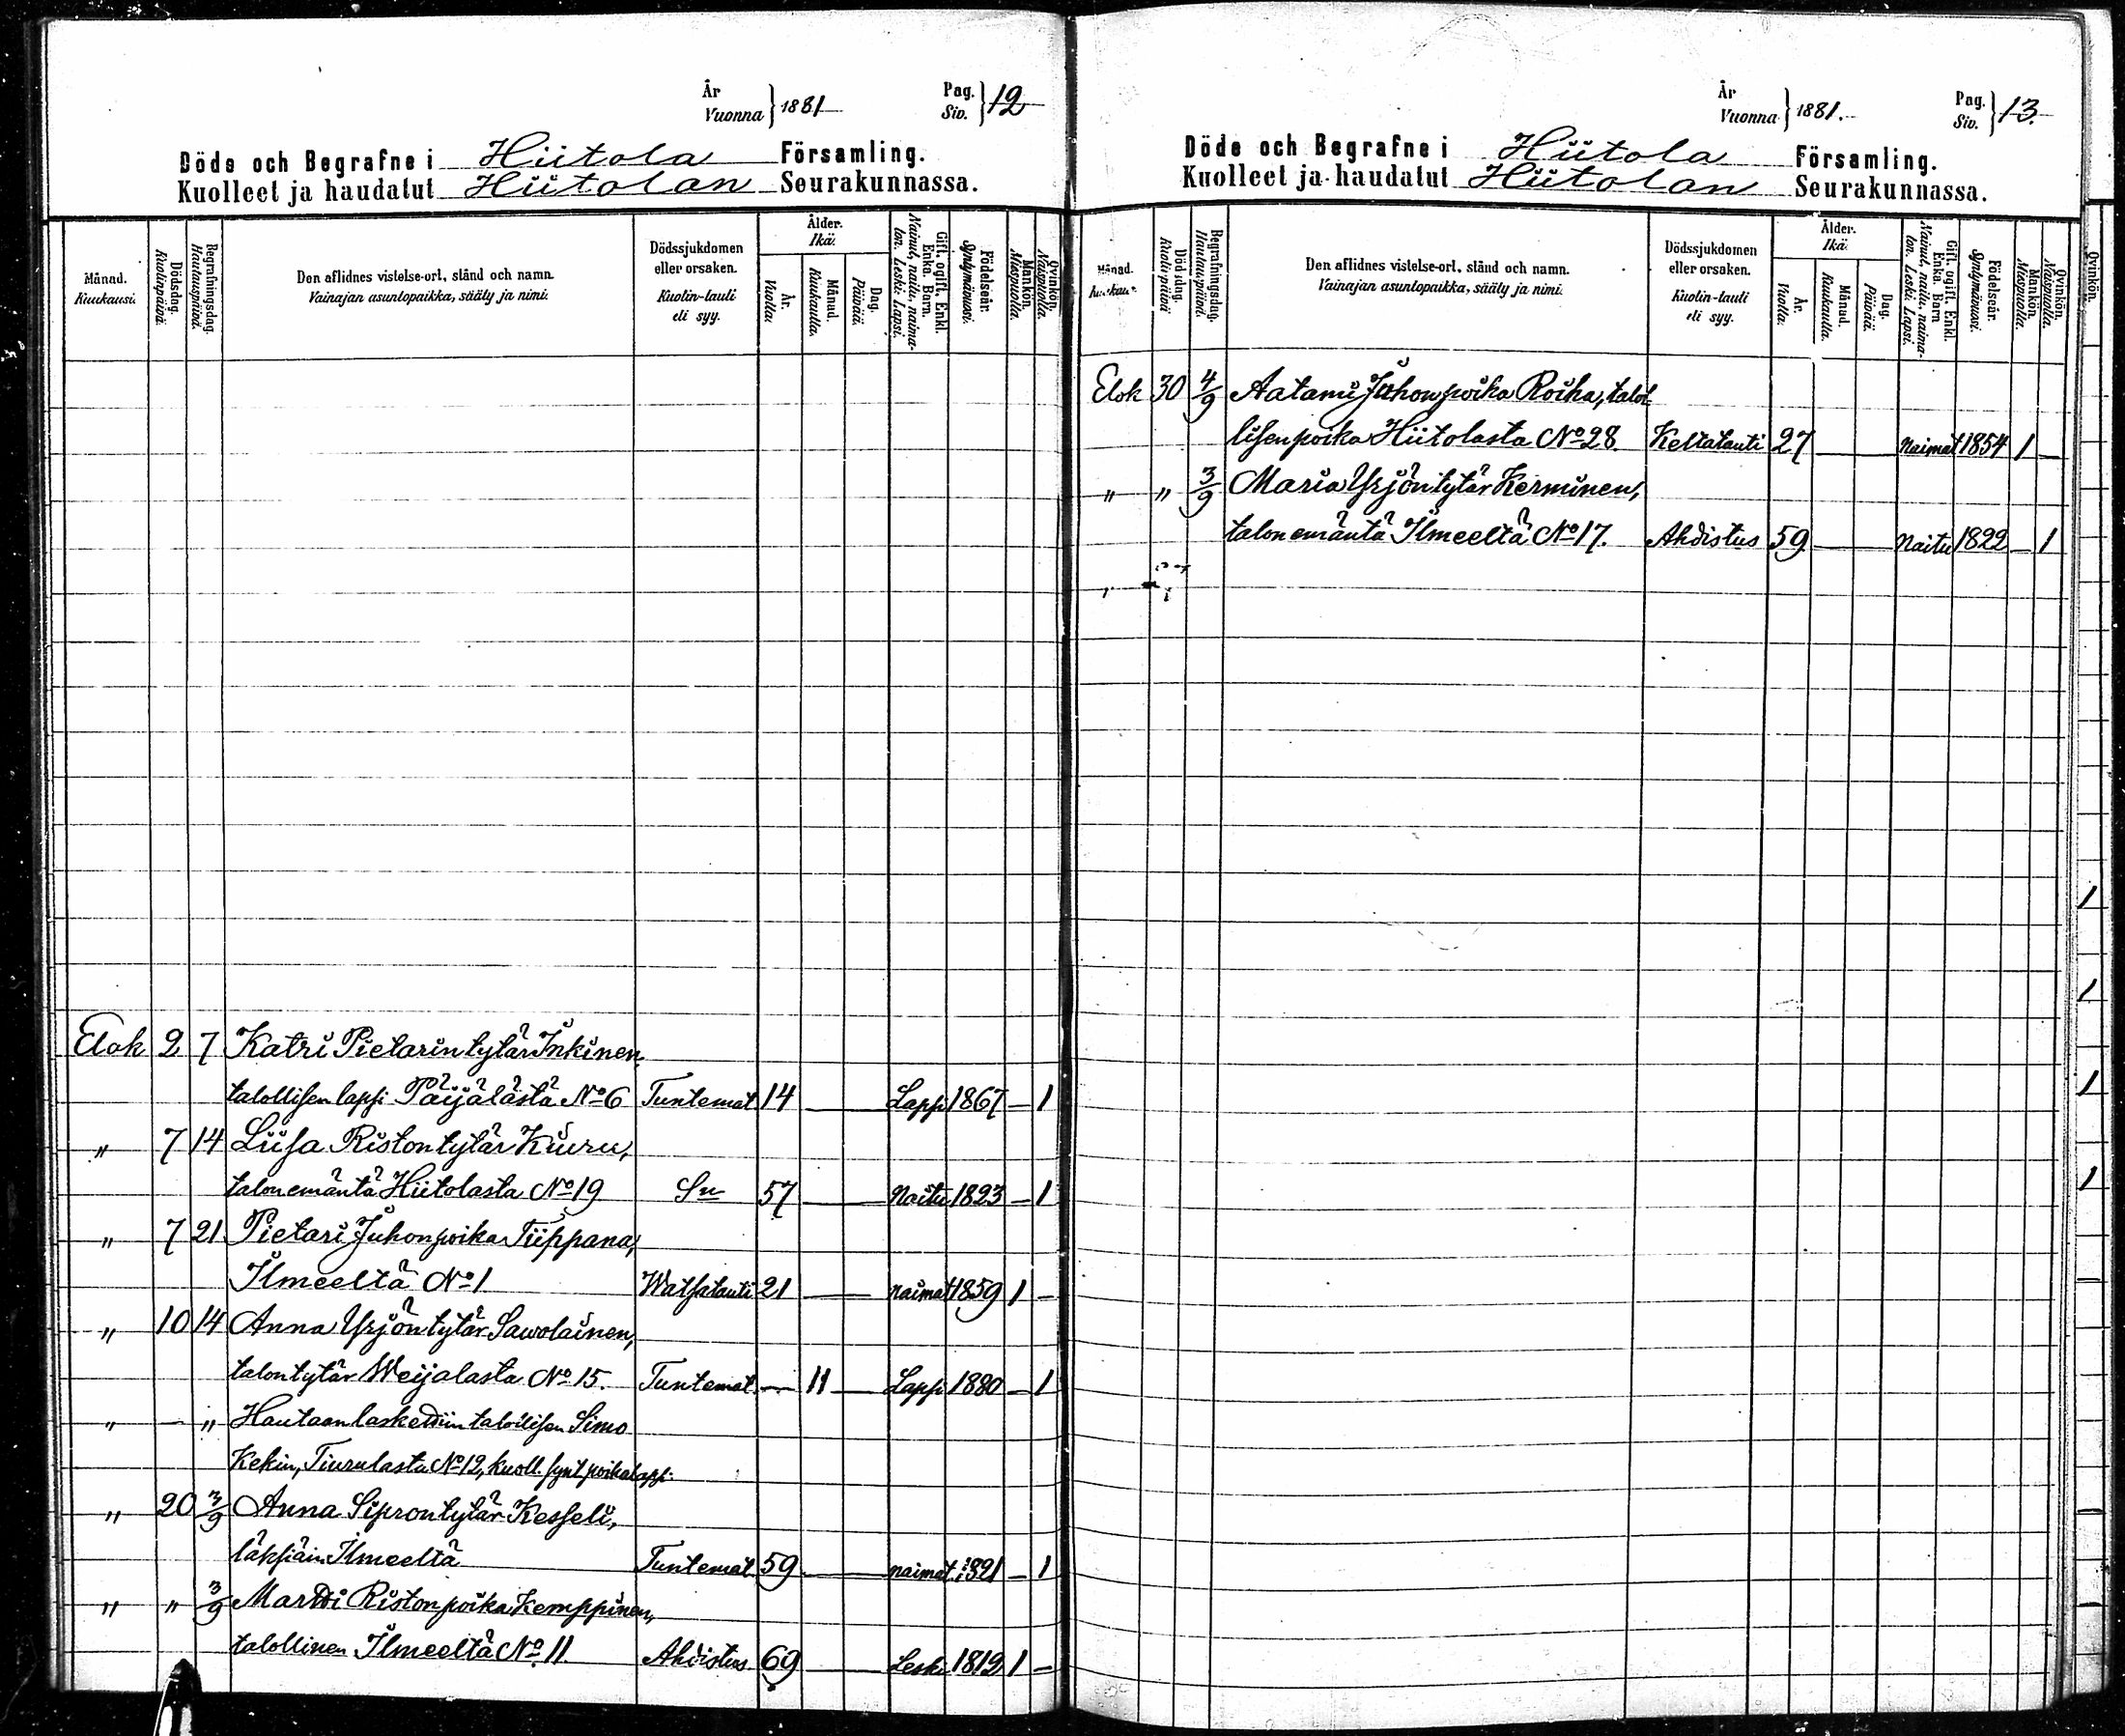 År
Vuonna } 1881
Pag.
Siv. } 12
Döde och Begrafne i Hiitola Församling.
Kuolleet ja haudatut Hiitolan Seurakunnassa.
Månad. Kuukausi.
Dödsdag. Kuolinpäivä.
Begrafningsdag. Hautauspäivä.
Den aflidnes vistelse-ort, stånd och namn.
Vainajan asuntopaikka, sääty ja nimi.
Dödssjukdomen eller orsaken.
Kuolin-tauti eli syy.
Ålder. Ikä.
År. Vuotta.
Månad. Kuukautta.
Dag. Päivää.
Gift, ogift, Enkl. Enka. Barn.
Nainut, naitu, naimaton. Leski. Lapsi.
Födelseår. Syntymävuosi.
Mankön. Miespuolia.
Qvinkön. Naispuolia.
Elok 2 7 Katri Pietarintytär Inkinen,
talollisen lapsi Päijälästä No 6 Tuntemat 14 — Lapsi 1867 — 1
" 7 14 Liisa Ristontytär Kiuru,
talon emäntä Hiitolasta No 19 Sn 57 — Naitu 1823 — 1
" 7 21 Pietari Juhonpoika Tiippana,
Ilmeeltä No 1 Watsatauti 21 — naimat 1859 1 —
" 10 14 Anna Yrjöntytär Sawolainen,
talontytär Weijalasta No 15. Tuntemat — 11 — Lapsi 1880 — 1
" — " Hautaan laskettiin talollisen Simo
Kekin, Tiurulasta No 12, kuoll. synt poikalapsi.
" 20 3/9 Anna Siprontytär Kesseli,
läksiäin Ilmeeltä Tuntemat 59 — naimat. 1821 — 1
" " 3/9 Martti Ristonpoika Kemppinen,
talollinen Ilmeeltä No 11. Ahdistus 69 — Leski 1812 1 —
År
Vuonna } 1881.
Pag.
Siv. } 13.
Döde och Begrafne i Hiitola Församling.
Kuolleet ja haudatut Hiitolan Seurakunnassa.
Månad. Kuukausi.
Dödsdag. Kuolinpäivä
Begrafningsdag. Hautauspäivä.
Den aflidnes vistelse-ort, stånd och namn.
Vainajan asuntopaikka, sääty ja nimi.
Dödssjukdomen eller orsaken.
Kuolin-tauti eli syy.
Ålder. Ikä.
År. Vuotta.
Månad. Kuukautta.
Dag. Päivää.
Gift, ogift, Enkl. Enka. Barn
Nainut, naitu, naimaton. Leski. Lapsi.
Födelseår. Syntymävuosi.
Mankön. Miespuolia.
Qvinkön. Naispuolia.
Qvinkön.
Elok 30 4/9 Aatami Juhonpoika Roiha, talol
lisen poika Hiitolasta No 28. Keltatauti 27 — Naimat 1854 1 —
" " 3/9 Maria Yrjöntytär Kerminen,
talon emäntä Ilmeeltä No 17. Ahdistus 59 — Naitu 1822 — 1
1
1
1
1